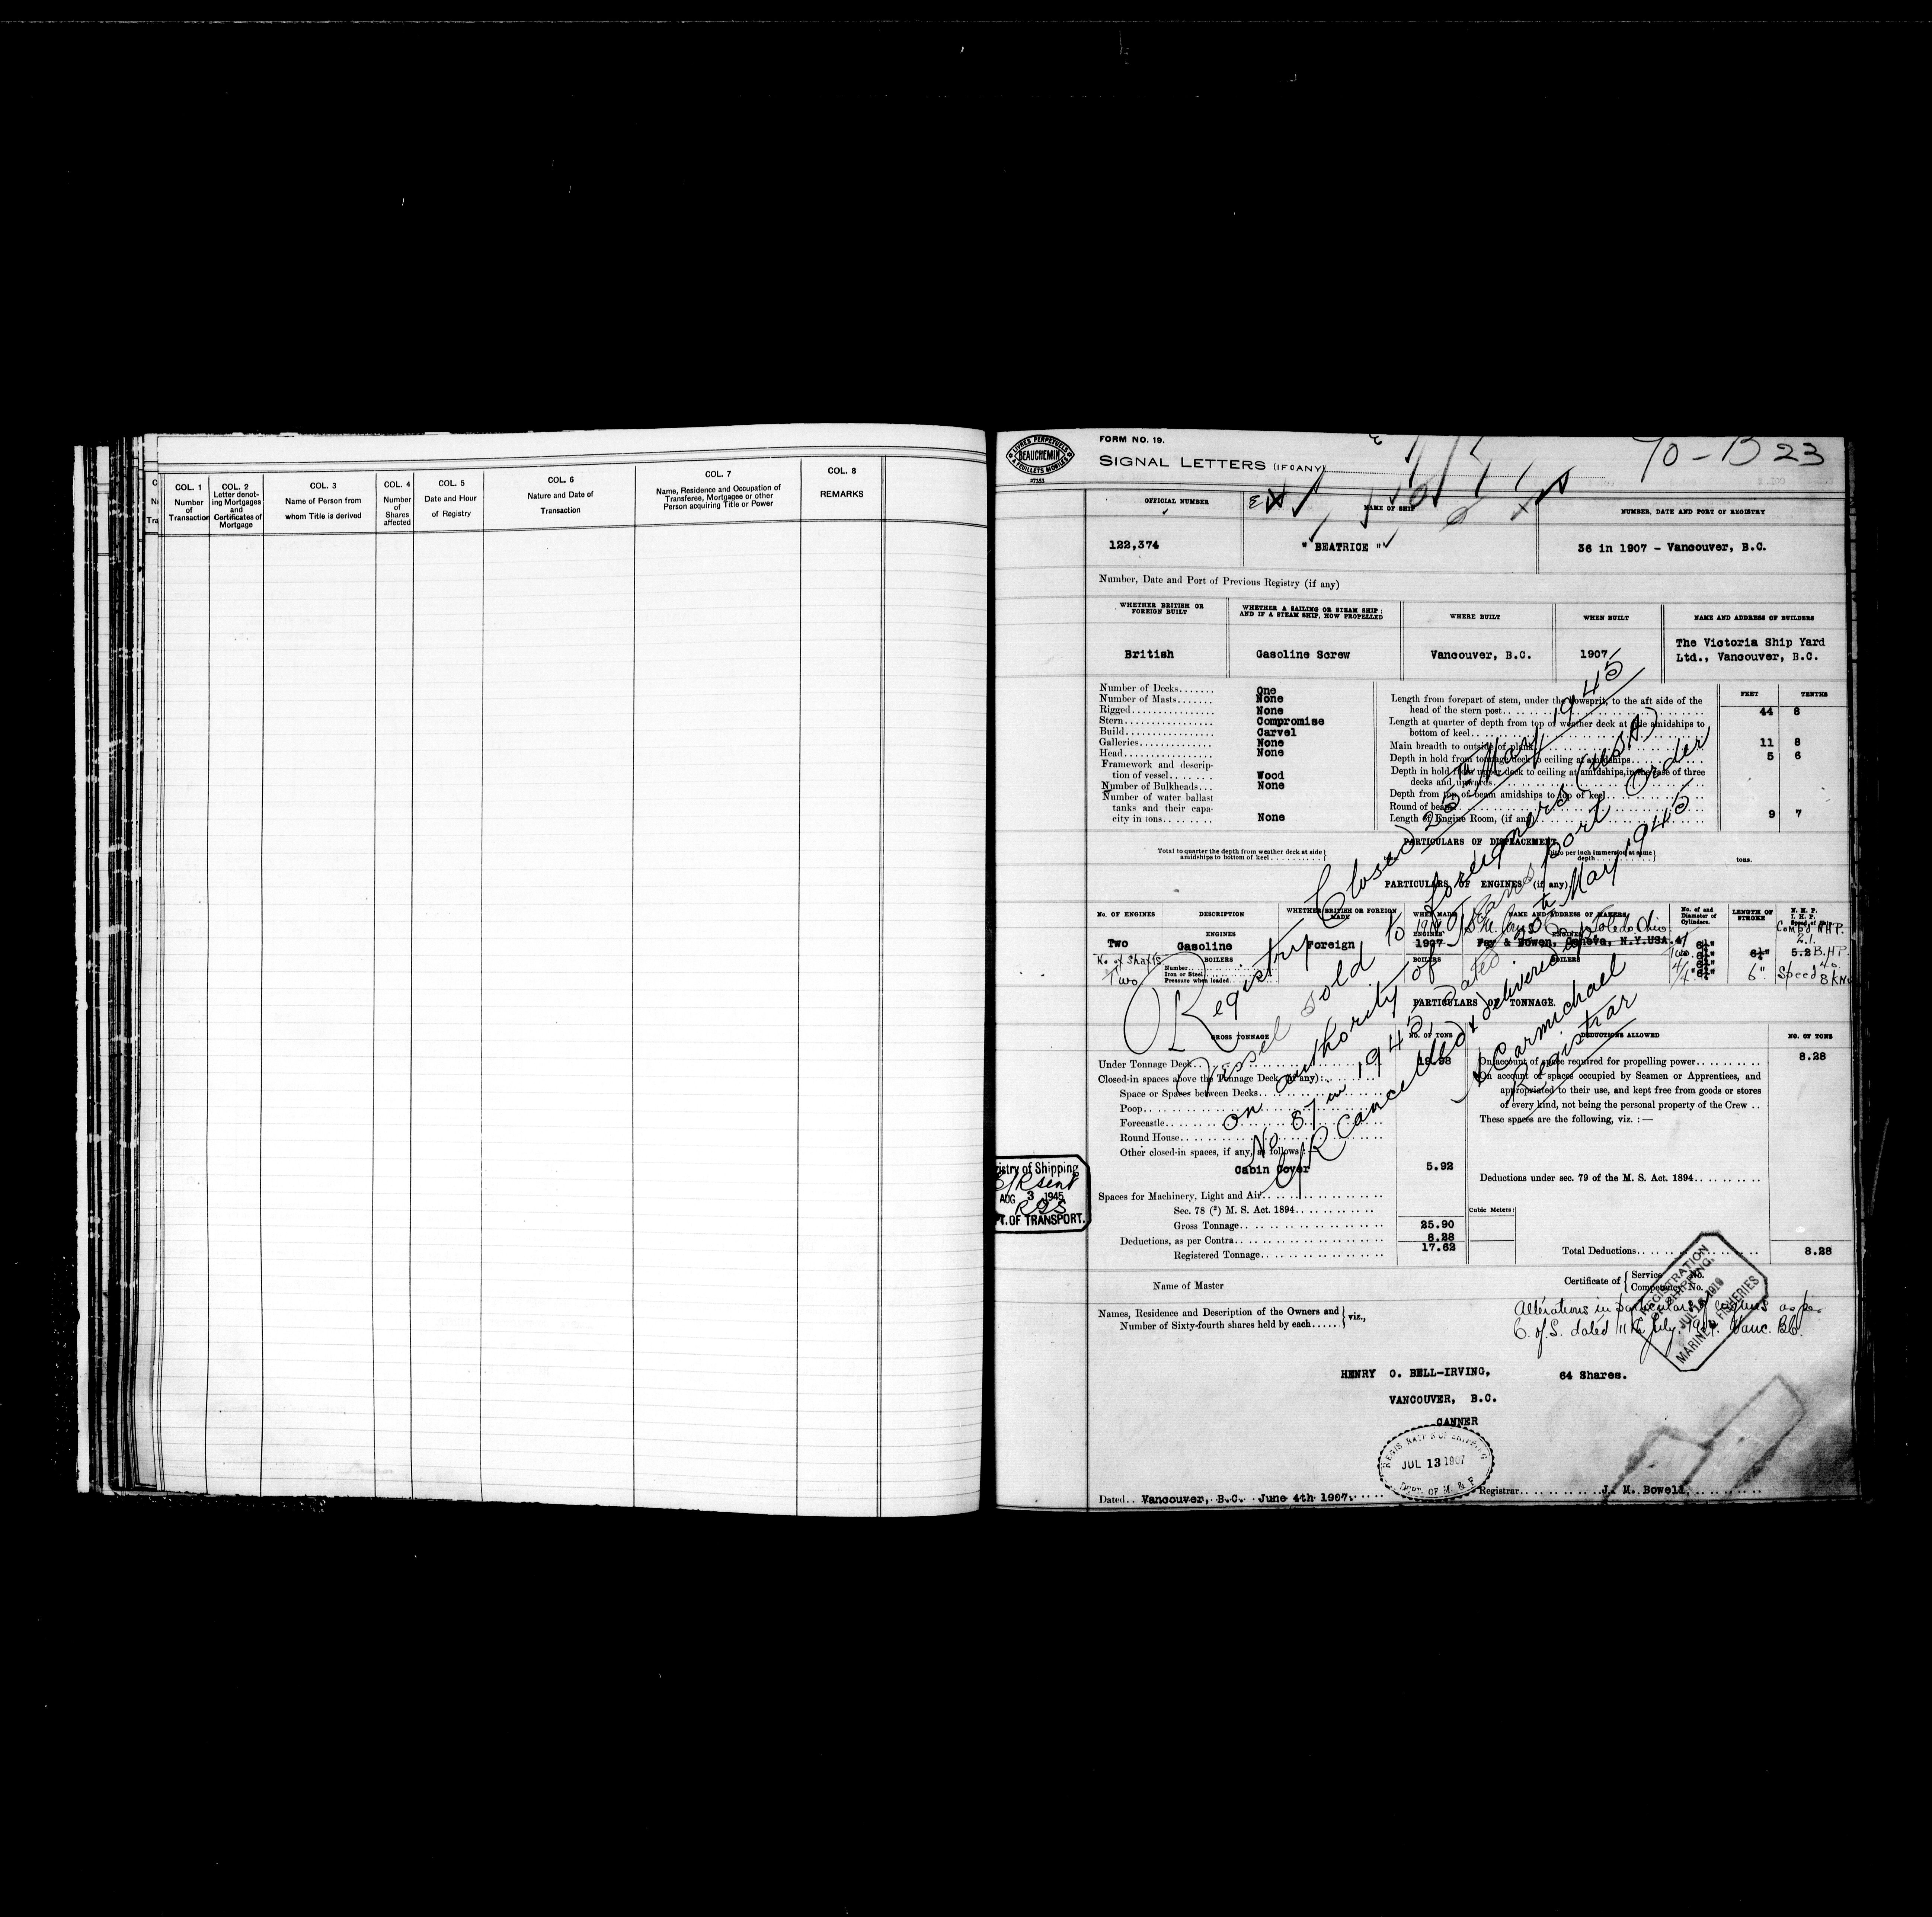 COL. 1
Number
of
Transaction
COL. 2
Letter denot-
ing Mortgages
and
Certificates of
Mortgage
COL. 3
Name of Person from
whom Title is derived
COL. 4
Number
of
Shares
affected
COL. 5
Date and Hour
of Registry
COL. 6
Nature and Date of
Transaction
COL. 7
Name, Residence and Occupation of
Transferee, Mortgagee or other
Person acquiring Title or Power
COL. 8
REMARKS
LIVRES PERPETUELS
BEAUCHEMIN
A FEUILLETS MOBILES
27353
FORM NO. 19.
SIGNAL LETTERS (IF ANY)
70-B 23
OFFICIAL NUMBER
NAME OF SHIP
NUMBER, DATE AND PORT OF REGISTRY
122,374
" BEATRICE "
36 in 1907 - Vancouver, B.C.
Number, Date and Port of Previous Registry (if any)
WHETHER BRITISH OR
FOREIGN BUILT
WHETHER A SAILING OR STEAM SHIP;
AND IF A STEAM SHIP, HOW PROPELLED
WHERE BUILT
WHEN BUILT
NAME AND ADDRESS OF BUILDERS
British
Gasoline Screw
Vancouver, B.C.
1907
The Victoria Ship Yard
Ltd., Vancouver, B.C.
Number of Decks....... One
Number of Masts....... None
Rigged............... None
Stern................ Compromise
Build................ Carvel
Galleries............. None
Head................ None
Framework and descrip-
tion of vessel........ Wood
Number of Bulkheads... None
Number of water ballast
tanks and their capa-
city in tons......... None
FEET TENTHS
Length from forepart of stem, under the bowsprit, to the aft side of the
head of the stern post 44 8
Length at quarter of depth from top of weather deck at side amidships to
bottom of keel
Main breadth to outside of plank 11 8
Depth in hold from tonnage deck to ceiling at amidships 5 6
Depth in hold from upper deck to ceiling at amidships, in the case of three
decks and upwards
Depth from top of beam amidships to top of keel
Round of beam
Length of Engine Room, (if any) 9 7
PARTICULARS OF DISPLACEMENT
Total to quarter the depth from weather deck at side
amidships to bottom of keel
Ditto per inch immersion at same
depth
tons.
PARTICULARS OF ENGINES (if any)
No. OF ENGINES
DESCRIPTION
WHETHER BRITISH OR FOREIGN
MADE
WHEN MADE
NAME AND ADDRESS OF MAKERS
No. of and
Diameter of
Cylinders.
LENGTH OF
STROKE
N. H. P.
I. H. P.
Speed of Ship
ENGINES
ENGINES
ENGINES
Comp'd NHP.
2.1.
Two
Gasoline
Foreign
1907
Fay & Bowen, Geneva, N.Y.USA.
Toledo, Ohio
6¼"
5.2 B.H.P.
40
No. of Shafts
Two
BOILERS
BOILERS
BOILERS
Number
Iron or Steel
Pressure when loaded
6"
Speed
8 KNs
PARTICULARS OF TONNAGE.
GROSS TONNAGE
NO. OF TONS
DEDUCTIONS ALLOWED
NO. OF TONS
Under Tonnage Deck 19.98
Closed-in spaces above the Tonnage Deck, (if any):
Space or Spaces between Decks
Poop
Forecastle
Round House
Other closed-in spaces, if any, as follows:—
Cabin Cover 5.92
Spaces for Machinery, Light and Air
Sec. 78 (²) M. S. Act. 1894
Cubic Meters:
Gross Tonnage 25.90
Deductions, as per Contra 8.28
Registered Tonnage 17.62
On account of space required for propelling power 8.28
On account of spaces occupied by Seamen or Apprentices, and
appropriated to their use, and kept free from goods or stores
of every kind, not being the personal property of the Crew ..
These spaces are the following, viz. :—
Deductions under sec. 79 of the M. S. Act. 1894
Total Deductions 8.28
Registry Closed 25th May 1945
Vessel sold to foreigners (USA)
on authority of Transport Order
No 87 in 1945 dated 25th May 1945
C/R Cancelled & delivered up
Carmichael
Registrar
istry of Shipping
C/R sent
AUG 3 1945
PT. OF TRANSPORT.
Name of Master
Certificate of
Service No.
Competency No.
REGISTRATION
OF SHIPPING.
MARINE & FISHERIES
Names, Residence and Description of the Owners and
Number of Sixty-fourth shares held by each
viz.,
Alterations in particulars of engines as per
C. of S. dated 11th July, 19 Vanc. B.C.
HENRY O. BELL-IRVING,
64 Shares.
VANCOUVER, B.C.
CANNER
JUL 13 1907
DEPT. OF M. & F
Dated.. Vancouver, B.C. June 4th 1907.
Registrar J. M. Bowell,